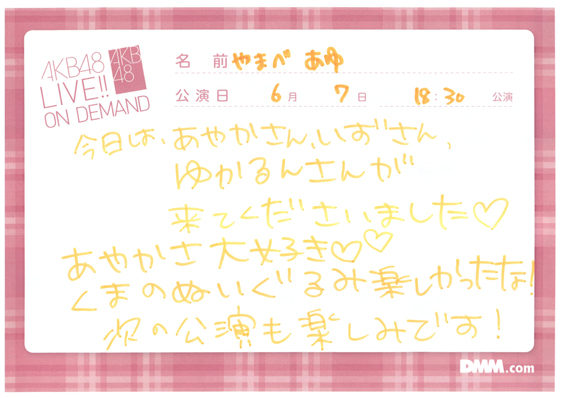 AKB48
LIVE!!
ON DEMAND
AKB
48
名 前 やまべ あゆ
公演日 6月 7日 18:30 公演
今日は、あやかさん、いずさん、
ゆかるんさんが
来てくださいました♡
あやかさ大好き♡♡
くまのぬいぐるみ楽しかったな!
次の公演も楽しみです!
DMM.com